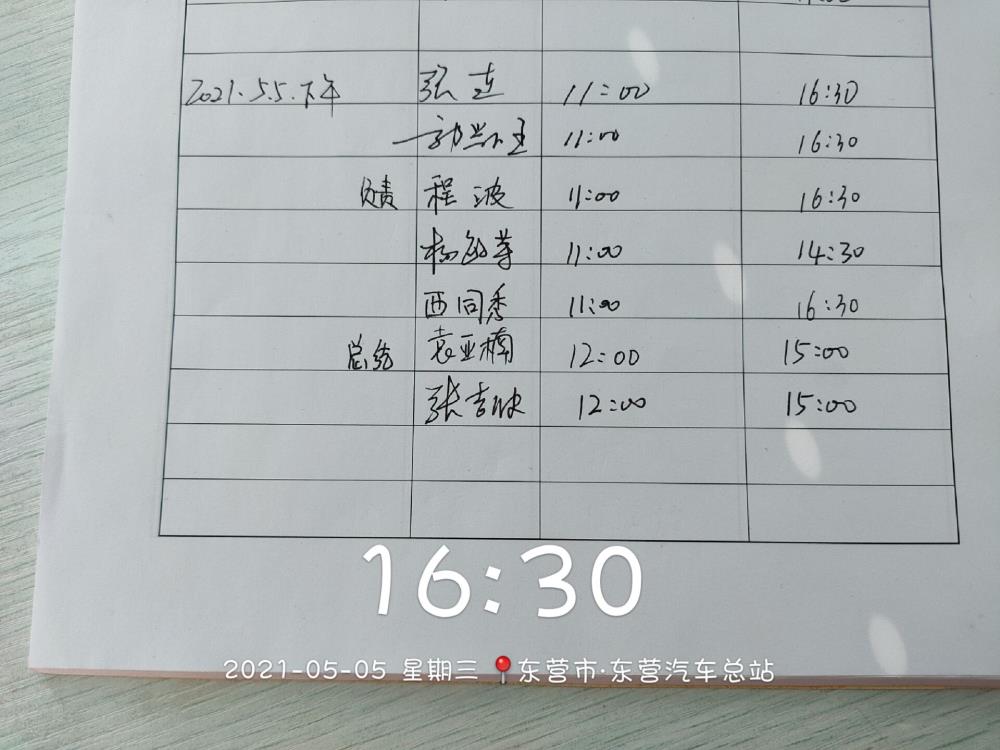 2021.5.5.下午 张芝 11:00 16:30
11:00 16:30
负责 程波 11:00 16:30
杨 11:00 14:30
西同秀 11:00 16:30
总结 袁亚楠 12:00 15:00
张吉 12:00 15:00
16:30
2021-05-05 星期三 📍东营市·东营汽车总站